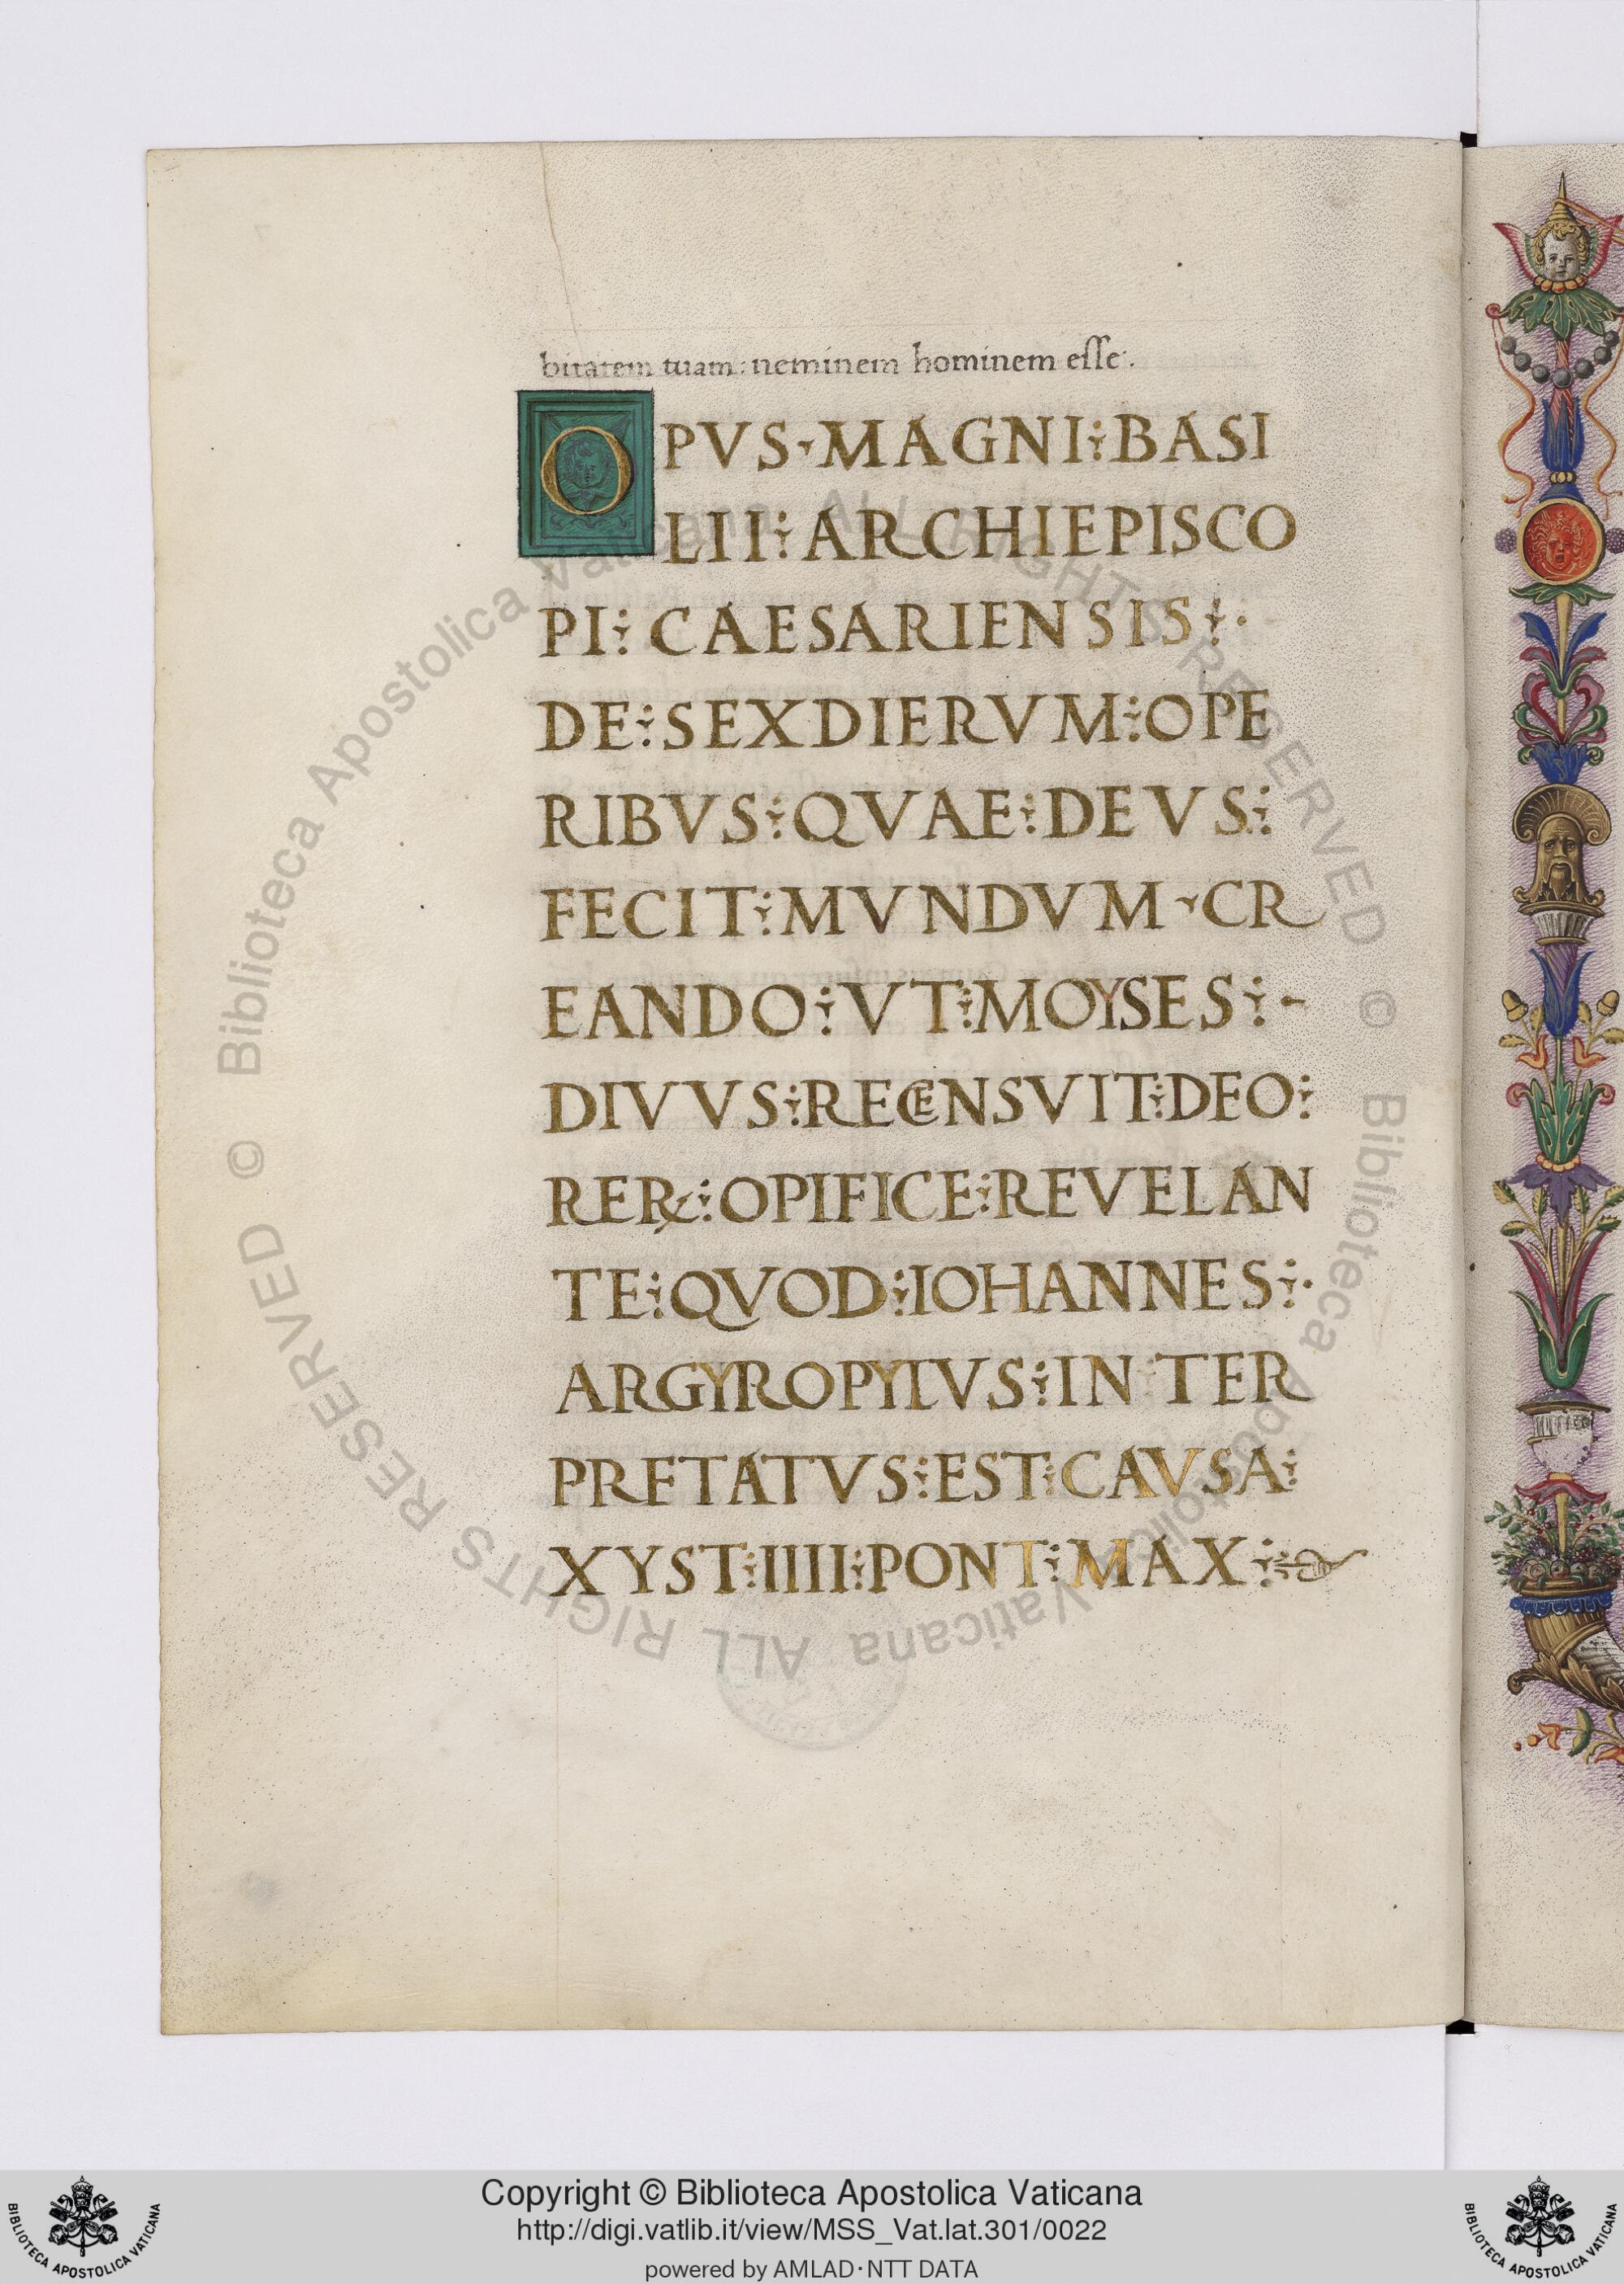 bitatem tuam: neminem hominem eſſe.
OPVS MAGNI BASI
LII ARCHIEPISCO
PI CAESARIENSIS
DE SEX DIERVM OPE
RIBVS QVAE DEVS
FECIT MVNDVM CR
EANDO VT MOYSES
DIVVS RECENSVIT DEO
RERꝝ OPIFICE REVELAN
TE QVOD IOHANNES
ARGYROPYLVS INTER
PRETATVS EST CAVSA
XYST IIII PONT MAX
© Biblioteca Apostolica Vaticana ALL RIGHTS RESERVED © Biblioteca Apostolica Vaticana ALL RIGHTS RESERVED
Copyright © Biblioteca Apostolica Vaticana
http://digi.vatlib.it/view/MSS_Vat.lat.301/0022
powered by AMLAD·NTT DATA
BIBLIOTECA APOSTOLICA VATICANA
BIBLIOTECA APOSTOLICA VATICANA